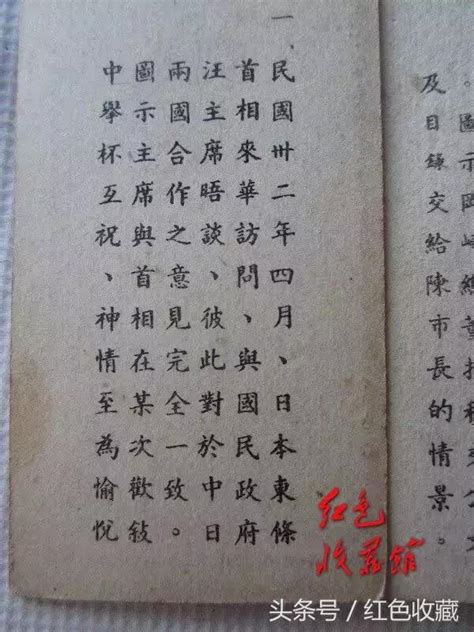 一、
民國卅二年四月、日本東條
首相來華訪問、與國民政府
汪主席晤談、彼此對於中日
兩國合作之意見完全一致。
圖示主席與首相在某次歡敍
中舉杯互祝、神情至為愉悅
及目錄交給陳市長的情景。
红色
收藏馆
头条号/红色收藏